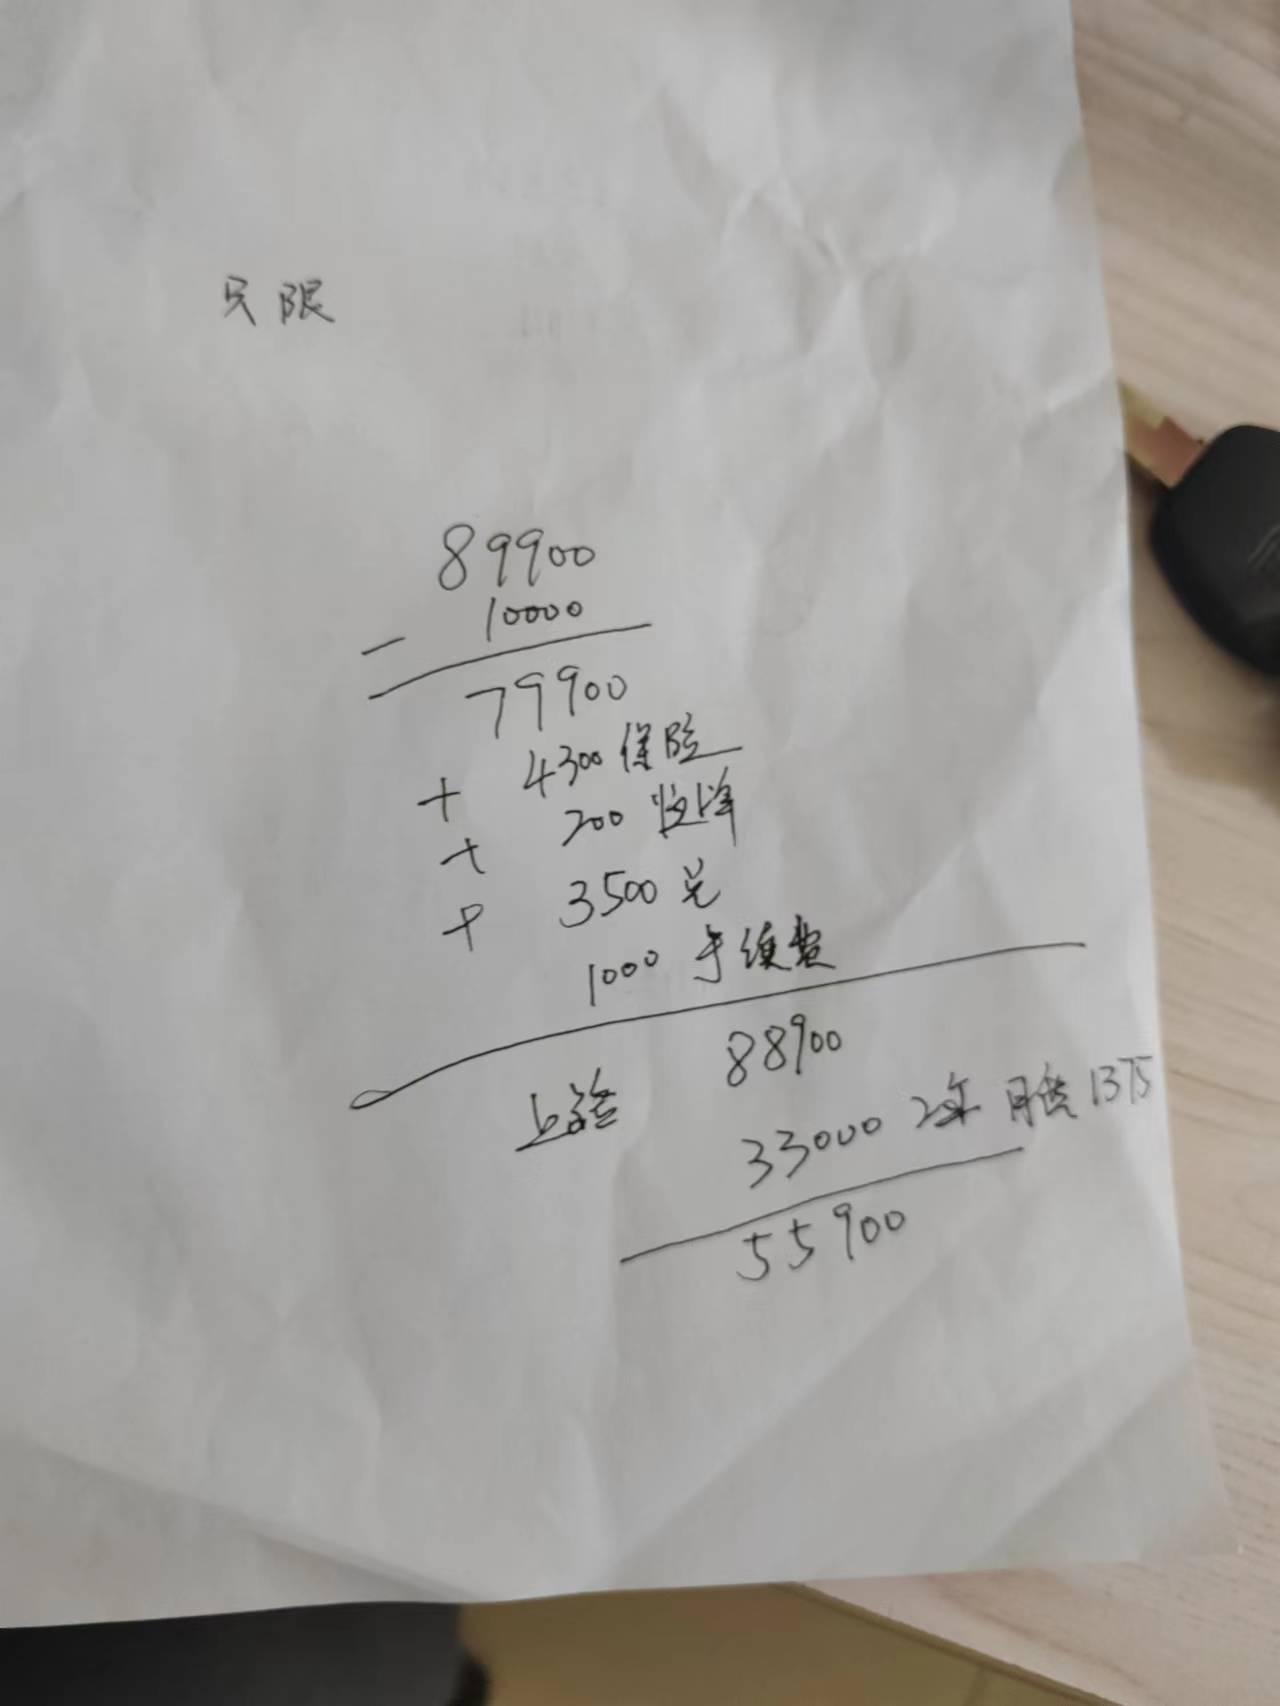 只限
89900
- 10000
79900
+ 4300 保险
+ 200
+ 3500
1000 手续费
88900
上
33000 2年 月供 1375
55900